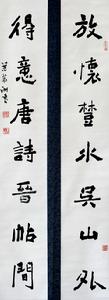 放懷楚水吳山外
得意唐詩晉帖間